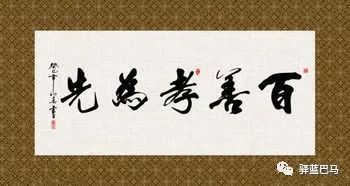 百善孝為先
驿蓝巴马